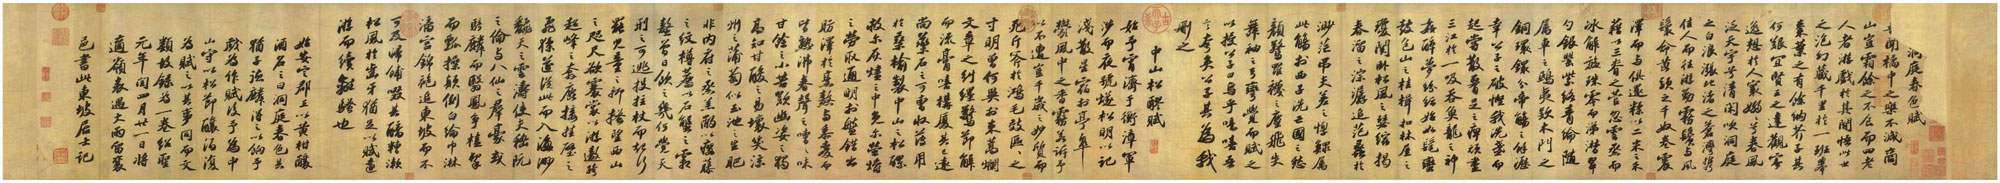 洞庭春色賦
吾聞橘中之樂不減商
山豈霜餘之不食而四老
人者游戲於其間悟此世
之泡幻藏千里於一班舉
棗葉之有餘納芥子其
何艱宜賢王之達觀寄
逸想於人寰嫋嫋兮春風
泛天宇兮清閑吹洞庭
之白浪漲北渚之蒼灣攜
佳人而往游勤霧鬢與風
鬟命黃頭之千奴卷震
澤而與俱還糅以二米之禾
藉以三脊之菅忽雲烝而
冰解旋珠零而涕潸翠
勺銀罌紫絡青綸隨
屬車之鴟夷款木門之
銅鐶分帝觴之餘瀝
幸公子之破慳我洗盞而
起嘗散腰足之痹頑盡
三江於一吸吞魚龍之神
姦醉夢紛紜始如髦蠻
鼓包山之桂楫扣林屋之
瓊關臥松風之瑟縮揭
春溜之淙潺追范蠡於
渺茫弔夫差之惸鰥屬
此觴於西子洗亡國之愁
顏驚羅襪之塵飛失
舞袖之弓彎覺而賦之
以授公子曰烏乎噫嘻吾
言夸矣公子其為我
刪之
中山松醪賦
始予宵濟于衡漳軍
涉而夜號燧松明以記
淺散星宿於亭皋
鬱風中之香霧若訴予
以不遭豈千歲之妙質而
死斤斧於鴻毛效區區之
寸明曾何異於束蒿爛
文章之糾纆驚節解
而流膏嘻構廈其已遠
尚藥石之可曹收薄用
於桑榆製中山之松醪
救爾灰燼之中免爾螢爝
之勞取通明於盤錯出
肪澤於烹熬與黍麥而
皆熟沸春聲之嘈嘈味
甘餘而小苦歎幽姿之獨
高知甘酸之易壞笑涼
州之蒲萄似玉池之生肥
非內府之烝羔酌以癭藤
之紋樽薦以石蟹之霜
螯曾日飲之幾何覺天
刑之可逃投拄杖而起行
罷兒童之抑搔望西山
之咫尺欲褰裳以游遨跨
超峰之奔鹿接掛壁之
飛猱遂從此而入海渺
翻天之雲濤使夫嵇阮
之倫與八仙之羣豪或
騎麟而翳鳳爭榼挈
而瓢操顛倒白綸巾淋
漓宮錦袍追東坡而不
可及歸餔歠其醨糟漱
松風於齒牙猶足以賦遠
游而續離騷也
始安定郡王以黃柑釀
酒名之曰洞庭春色其
猶子德麟得之以餉予
戲為作賦後予為中
山守以松節釀酒復
為賦之以其事同而文
類故錄為一卷紹聖
元年閏四月廿一日將
適嶺表遇大雨留襄
邑書此東坡居士記